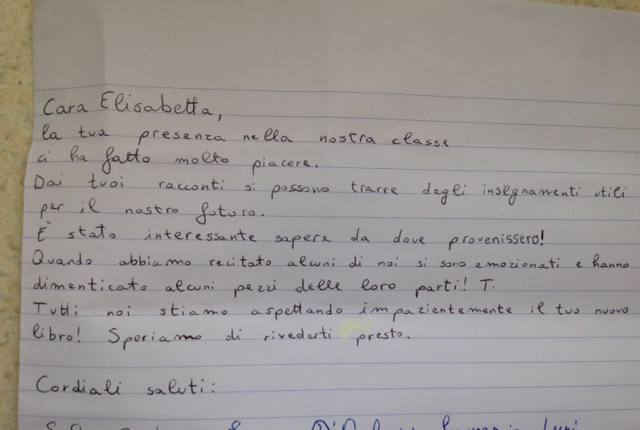 Cara Elisabetta,
la tua presenza nella nostra classe
ci ha fatto molto piacere.
Dai tuoi racconti si possono trarre degli insegnamenti utili
per il nostro futuro.
È stato interessante sapere da dove provenissero!
Quando abbiamo recitato alcuni di noi si sono emozionati e hanno
dimenticato alcuni pezzi delle loro parti! T.
Tutti noi stiamo aspettando impazientemente il tuo nuovo
libro! Speriamo di rivederti presto.
Cordiali saluti: